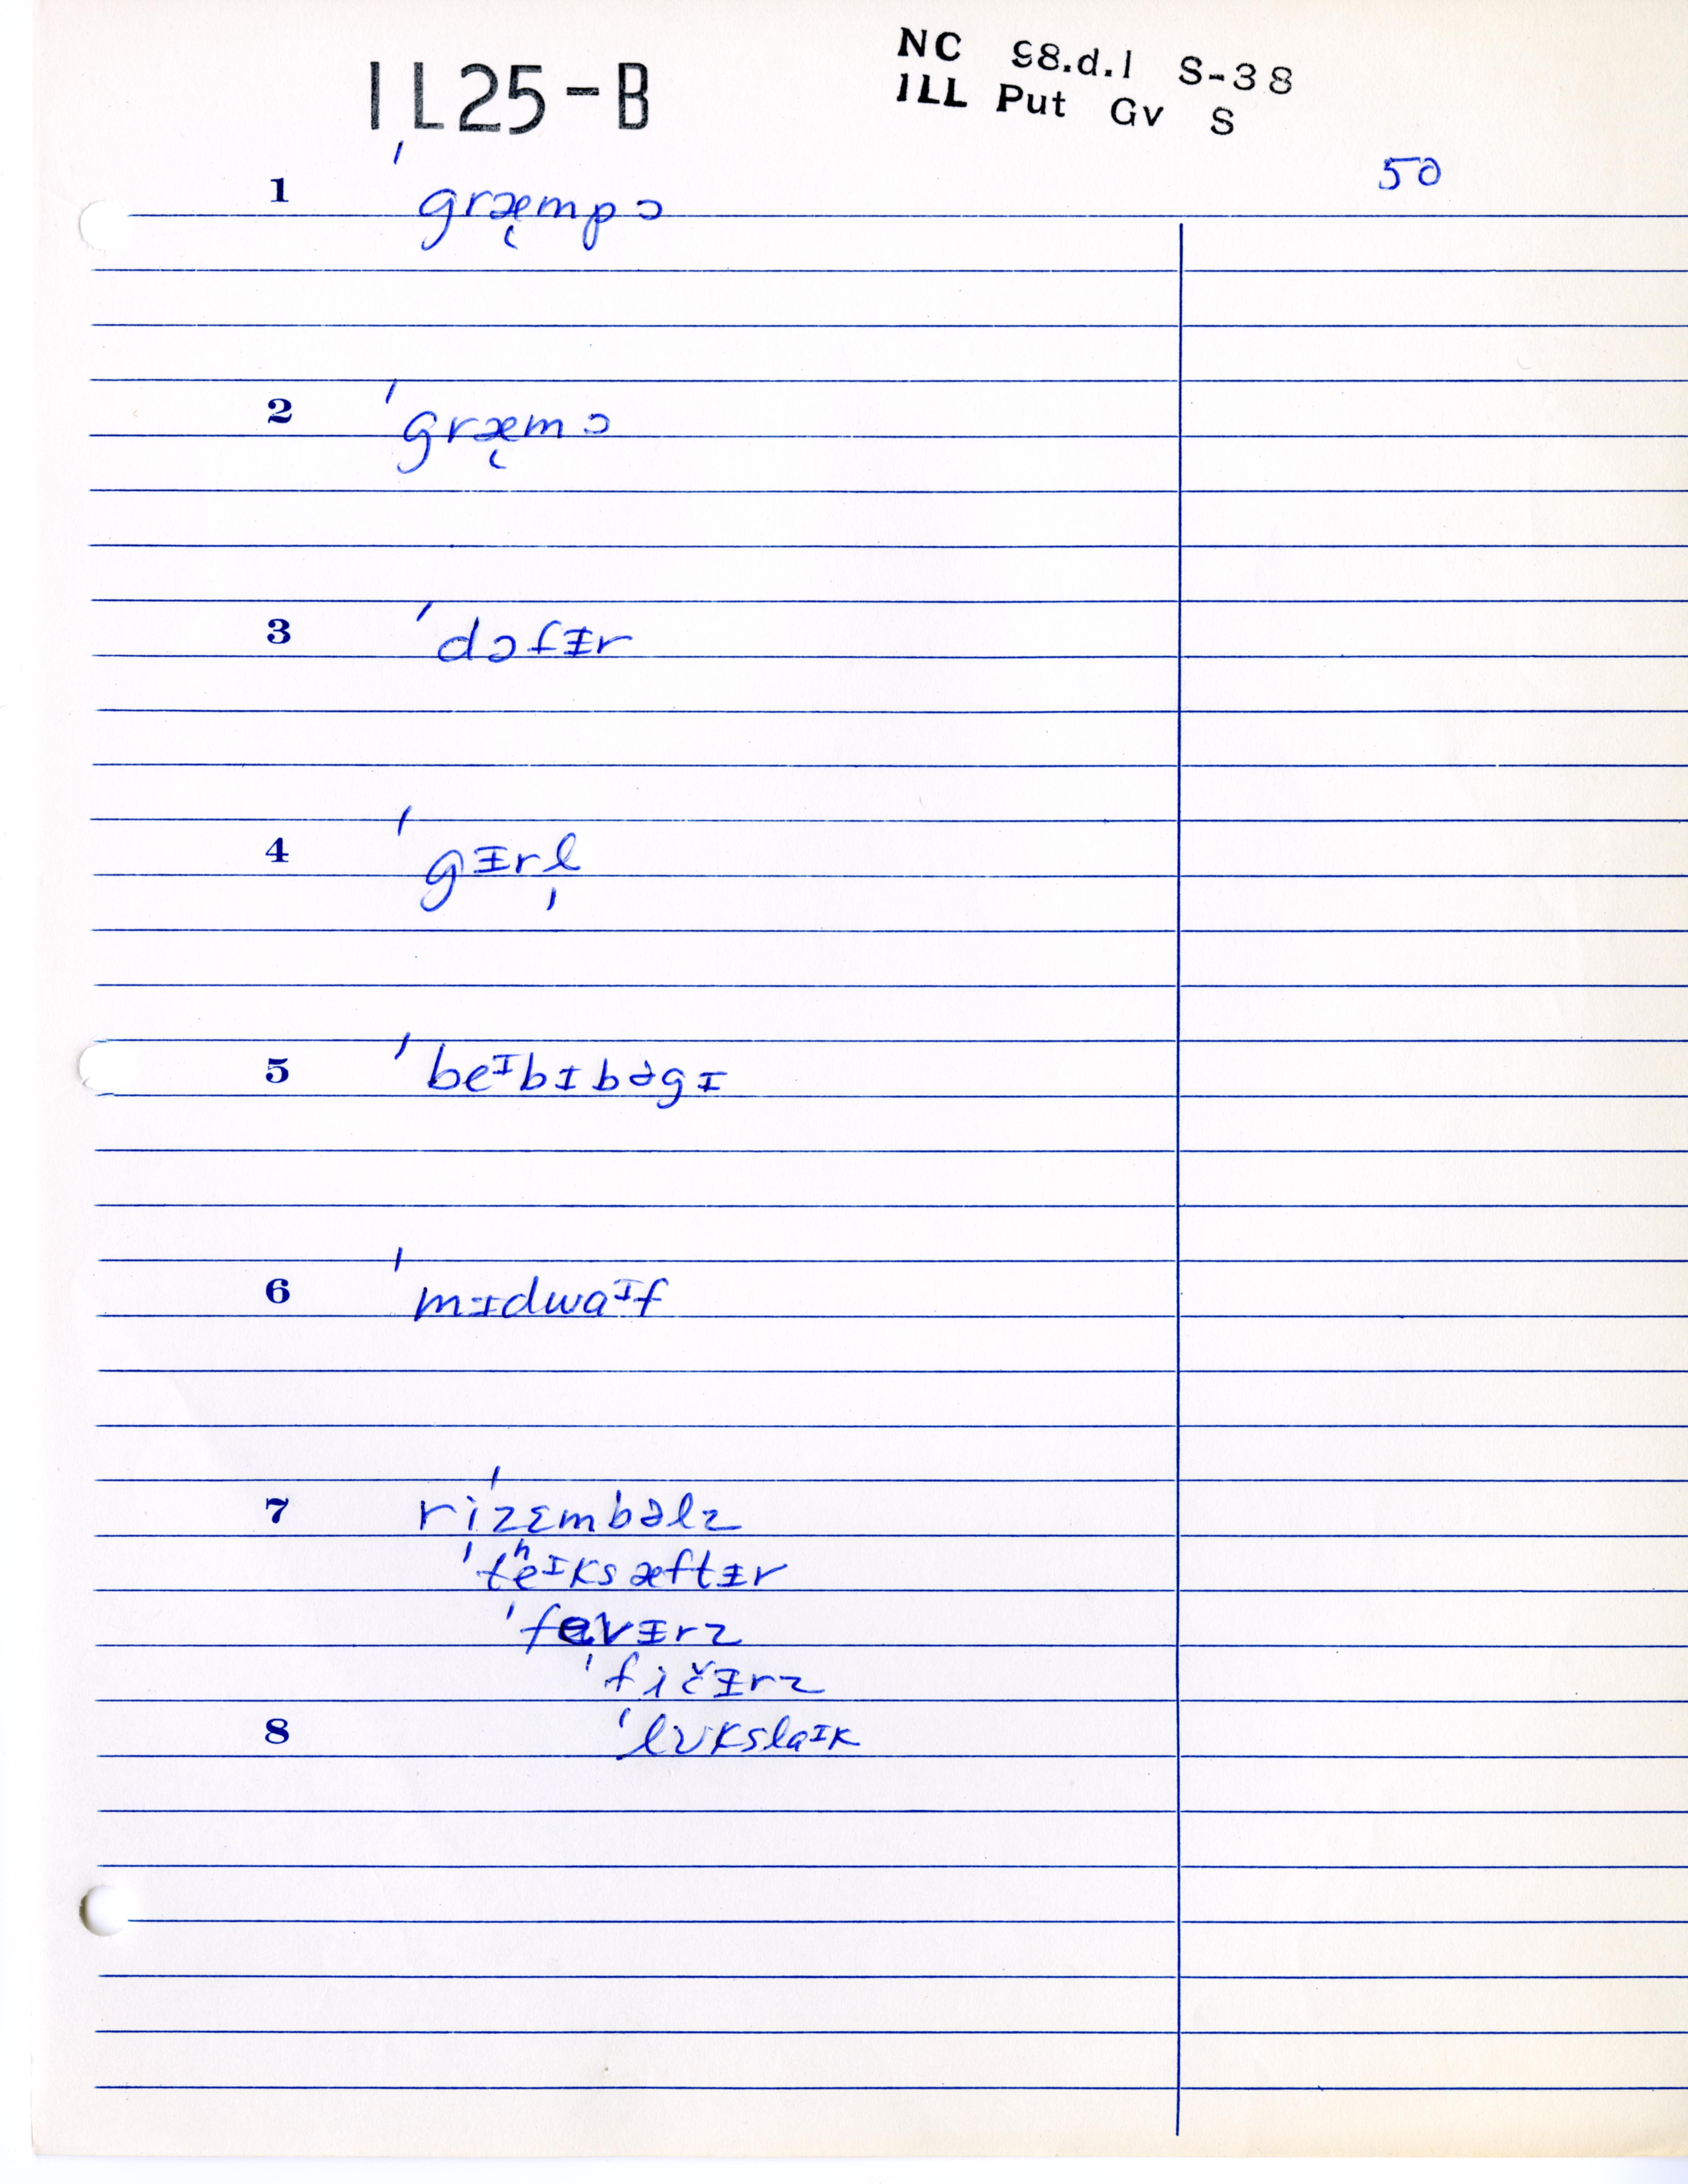 IL25-B
NC 98.d.1 S-38
ILL Put Gv S
50
1 ˈgræ̨mpɔ
2 ˈgræ̨mɔ
3 ˈdɔfᵻr
4 ˈgᵻrl̩
5 ˈbeᶦbɪbəgɪ
6 ˈmɪdwaᶦf
7 riˈzɛmbəlz
ˈtʰeᶦksæftᵻr
ˈfevᵻrz
ˈfičᵻrz
8 ˈlʊkslaᶦk